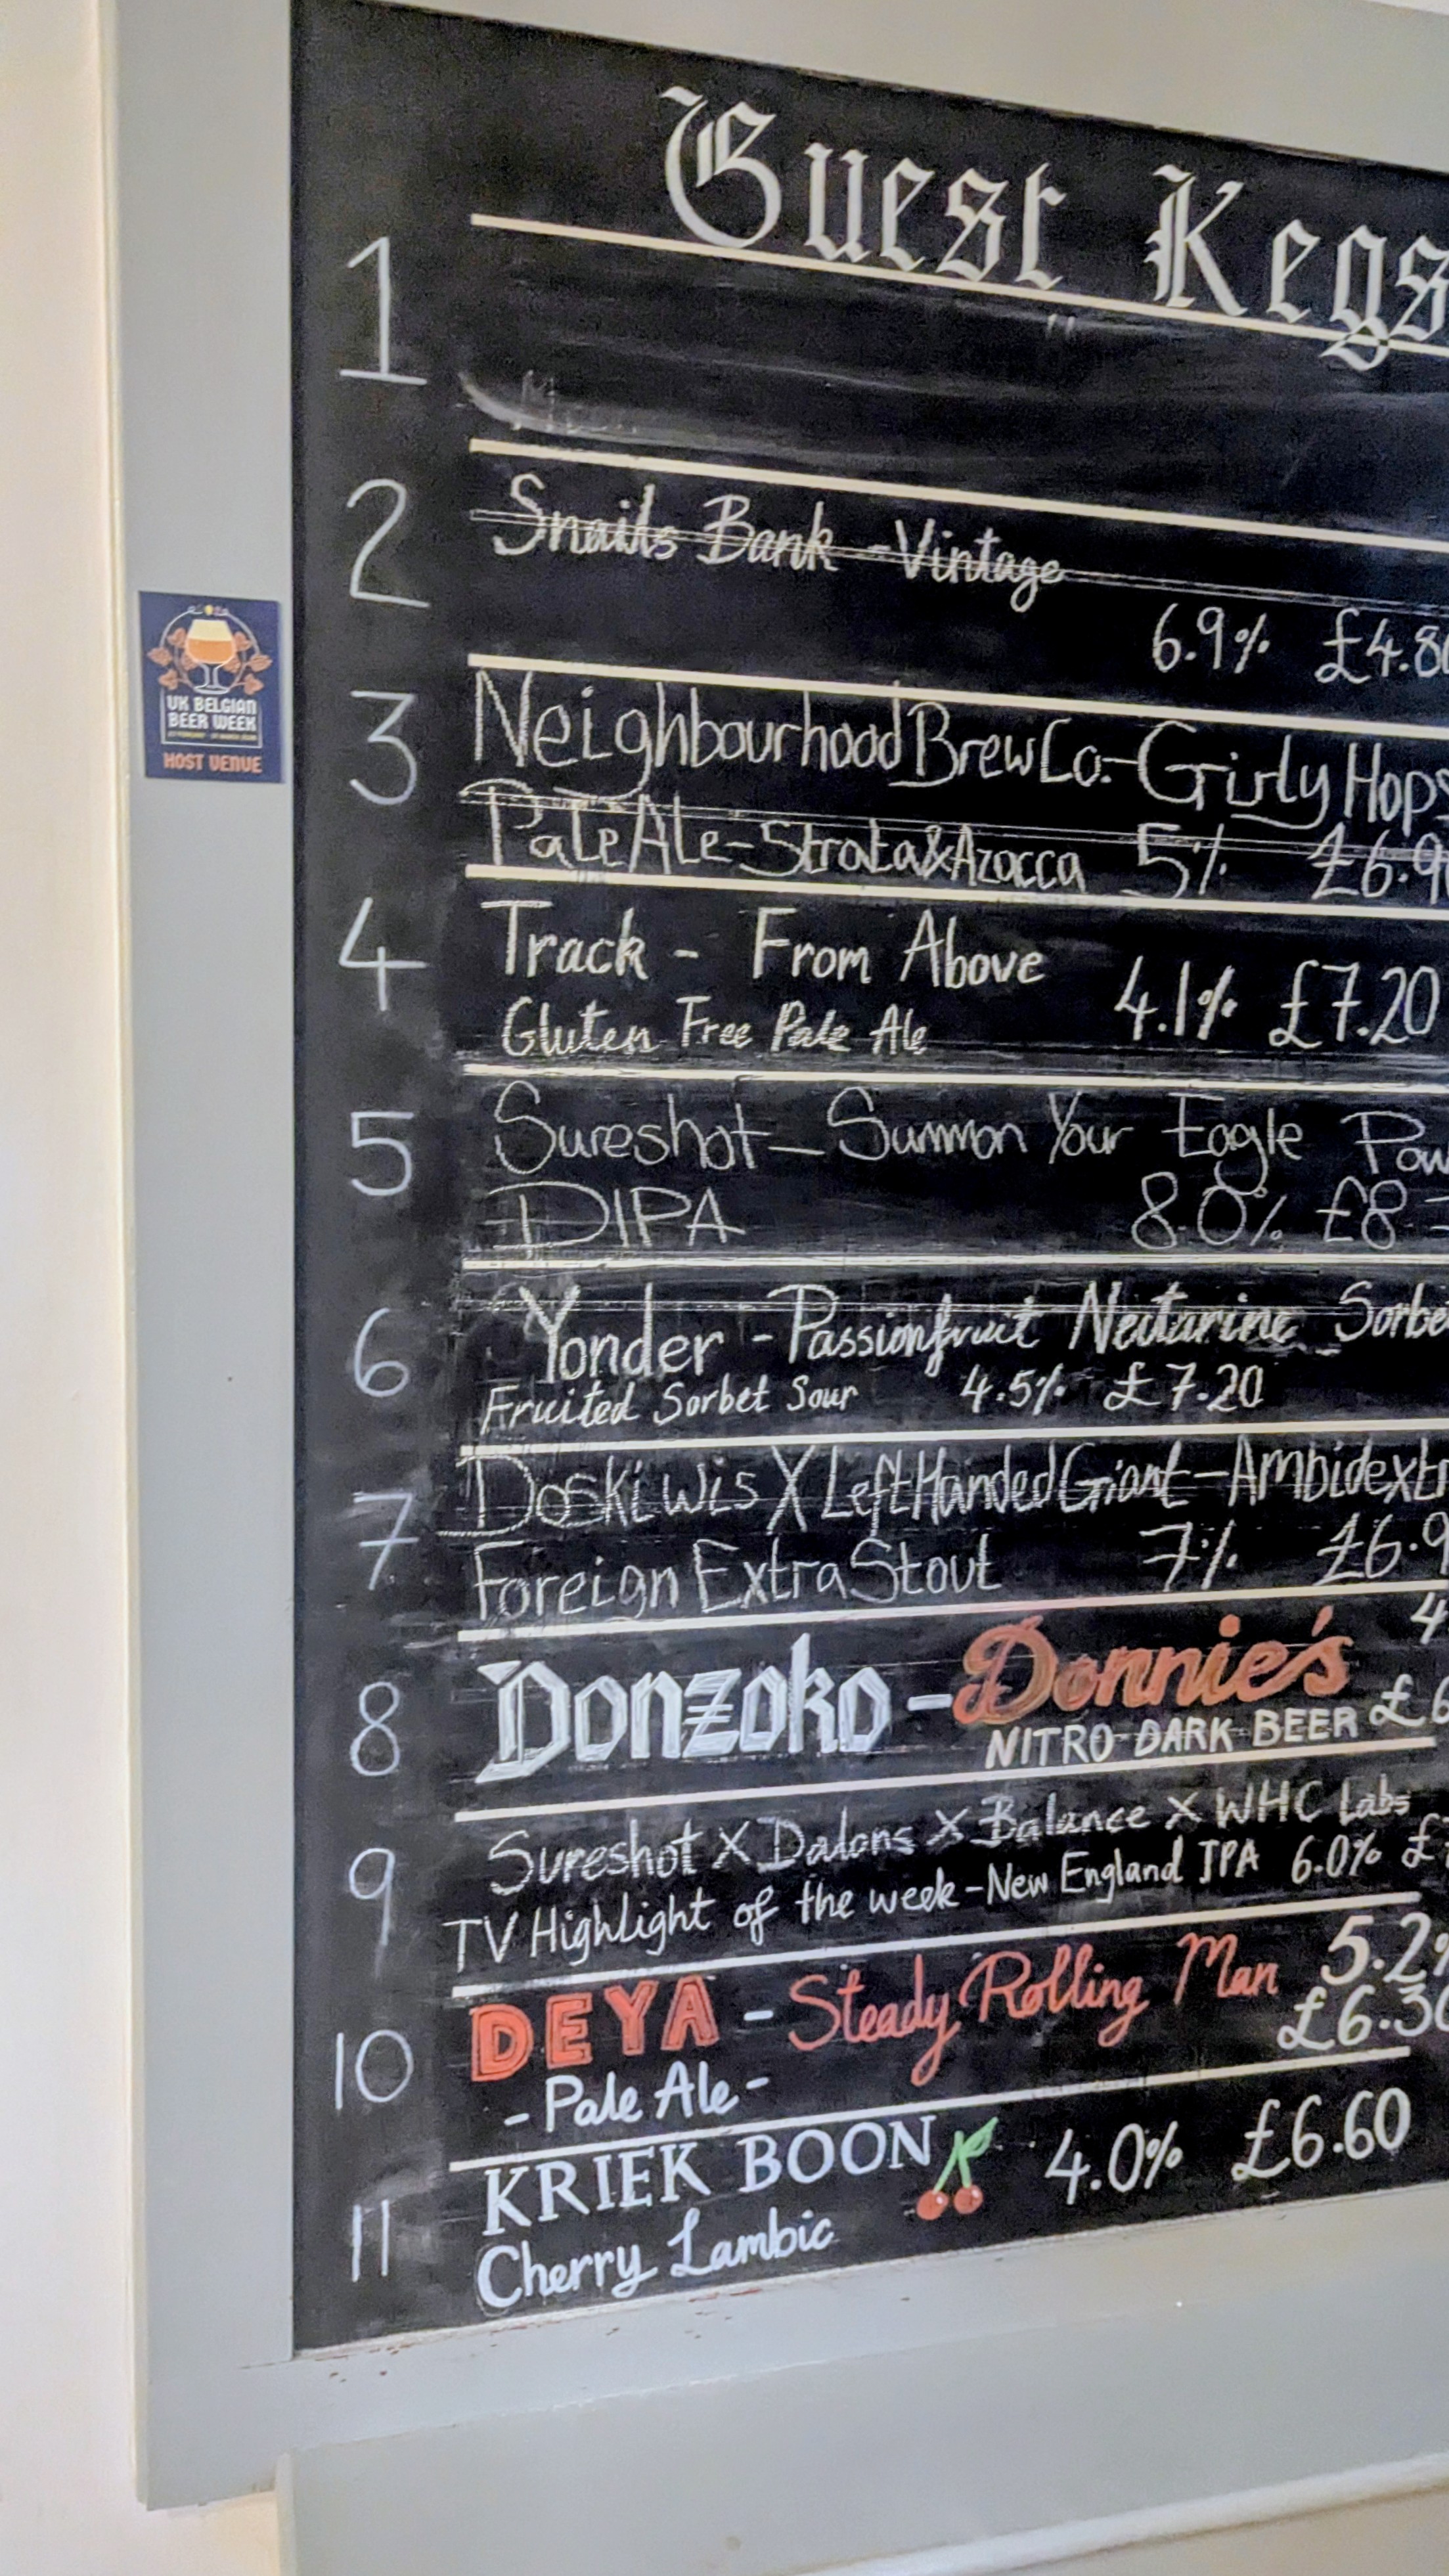 Guest Kegs
1
2
Snails Bank - Vintage
6.9% £4.80
3
Neighbourhood Brew Co. - Girly Hops
Pale Ale - Strata & Azacca 5% £6.9
4
Track - From Above
Gluten Free Pale Ale 4.1% £7.20
5
Sureshot - Summon Your Eagle Pow
DIPA 8.0% £8
6
Yonder - Passionfruit Nectarine Sorbe
Fruited Sorbet Sour 4.5% £7.20
7
Doskiwis X Left Handed Giant - Ambidextr
Foreign Extra Stout 7% £6.9
8
4
Donzoko - Donnie's
NITRO DARK BEER £6
9
Sureshot X Dalons X Balance X WHC Labs
TV Highlight of the week - New England IPA 6.0% £
10
DEYA - Steady Rolling Man 5.2%
£6.30
- Pale Ale -
11
KRIEK BOON 4.0% £6.60
Cherry Lambic
UK BELGIAN
BEER WEEK
HOST VENUE